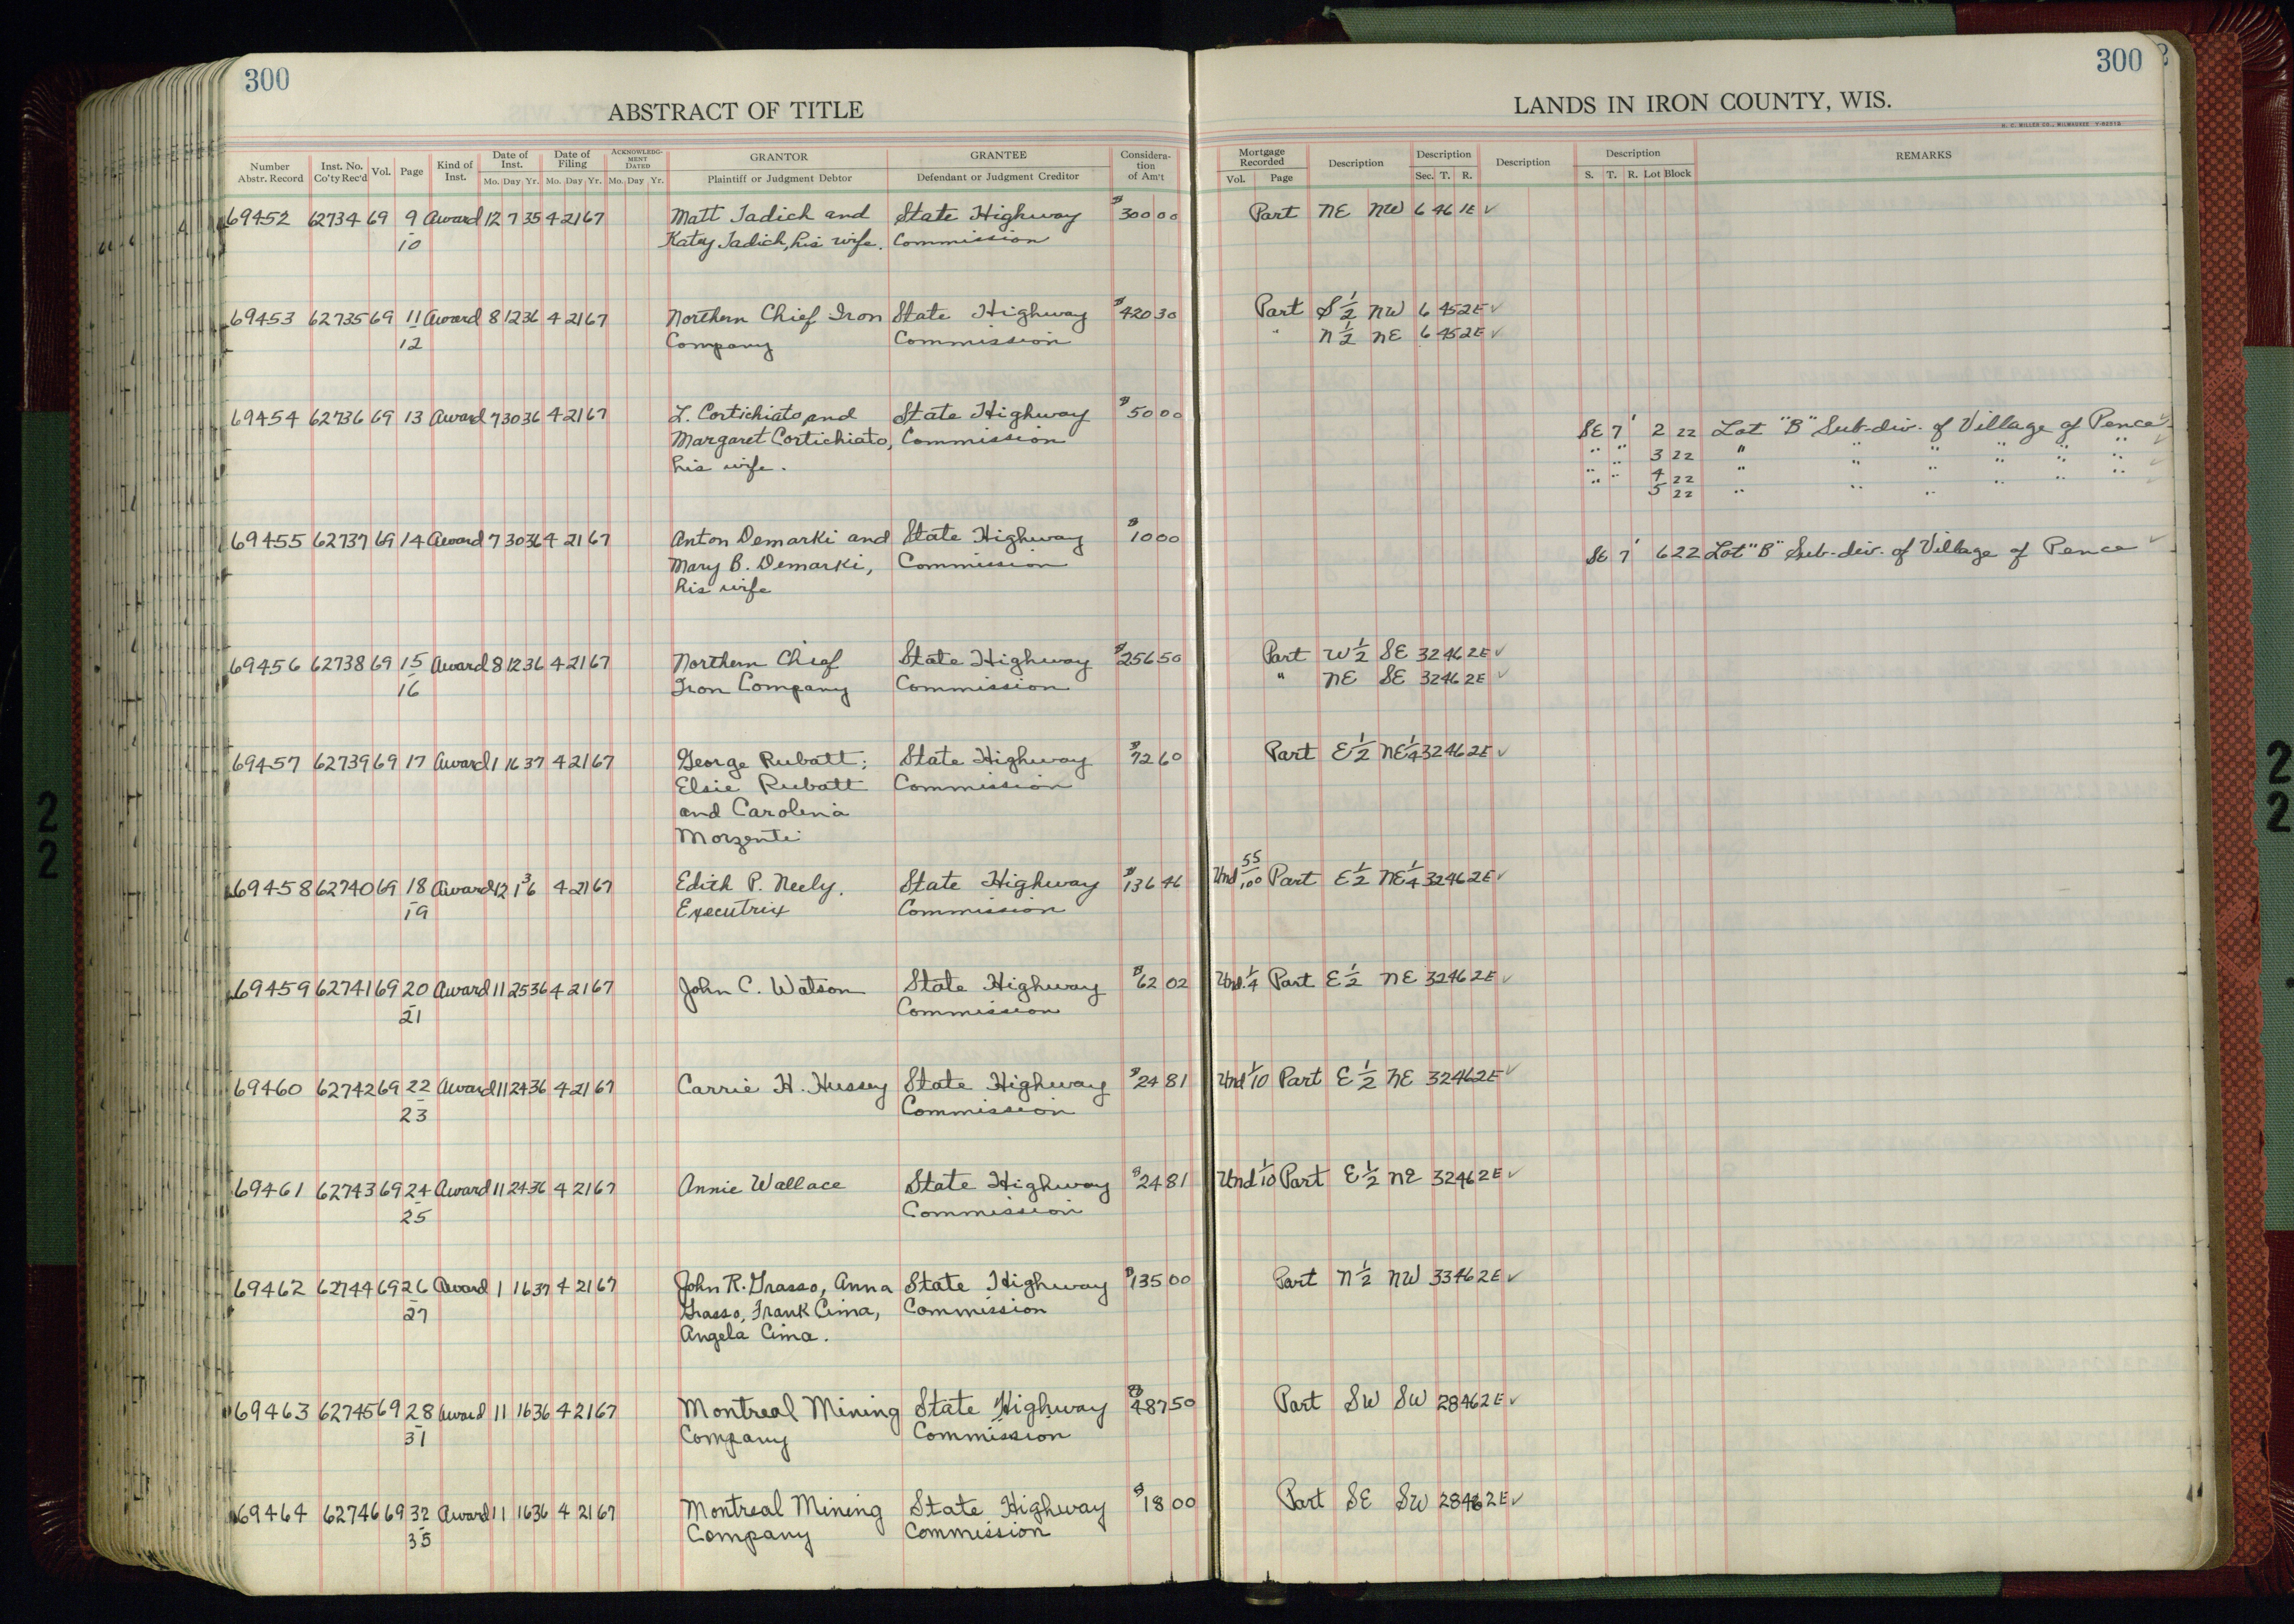 300
ABSTRACT OF TITLE
Number Abstr. Record Inst. No. Co'ty Rec'd Vol. Page Kind of Inst. Date of Inst. Mo. Day Yr. Date of Filing Mo. Day Yr. ACKNOWLEDGMENT DATED Mo. Day Yr. GRANTOR Plaintiff or Judgment Debtor GRANTEE Defendant or Judgment Creditor Consideration of Am't
69452 62734 69 9 Award 12 7 35 4 21 67 Matt Jadich and State Highway $300 00
10 Katey Jadich, his wife. Commission
69453 62735 69 11 Award 8 12 36 4 21 67 Northern Chief Iron State Highway $420 30
12 Company Commission
69454 62736 69 13 Award 7 30 36 4 21 67 L. Cortichiato and State Highway $50 00
Margaret Cortichiato, Commission
his wife.
69455 62737 69 14 Award 7 30 36 4 21 67 Anton Demarki and State Highway $10 00
Mary B. Demarki, Commission
his wife
69456 62738 69 15 Award 8 12 36 4 21 67 Northern Chief State Highway $256 50
16 Iron Company Commission
69457 62739 69 17 Award 1 16 37 4 21 67 George Rubatt; State Highway $72 60
Elsie Rubatt Commission
and Carolina
Morzenti
69458 62740 69 18 Award 12 1 36 4 21 67 Edith P. Neely, State Highway $136 46
19 Executrix Commission
69459 62741 69 20 Award 11 25 36 4 21 67 John C. Watson State Highway $62 02
21 Commission
69460 62742 69 22 Award 11 24 36 4 21 67 Carrie H. Hussey State Highway $24 81
23 Commission
69461 62743 69 24 Award 11 24 36 4 21 67 Annie Wallace State Highway $24 81
25 Commission
69462 62744 69 26 Award 1 16 37 4 21 67 John R. Grasso, Anna State Highway $135 00
27 Grasso, Frank Cima, Commission
Angela Cima.
69463 62745 69 28 Award 11 16 36 4 21 67 Montreal Mining State Highway $487 50
31 Company Commission
69464 62746 69 32 Award 11 16 36 4 21 67 Montreal Mining State Highway $18 00
35 Company Commission
300
LANDS IN IRON COUNTY, WIS.
H. C. MILLER CO., MILWAUKEE
Mortgage Recorded Vol. Page Description Description Sec. T. R. Description Description S. T. R. Lot Block REMARKS
Part NE NW 6 46 1E ✓
Part S 1/2 NW 6 45 2E ✓
" N 1/2 NE 6 45 2E ✓
SE 7 ' 2 22 Lot "B" Sub-div. of Village of Pence ✓
" " 3 22 " " " " " " ✓
" " 4 22 " " " " " " ✓
" " 5 22 " " " " " " ✓
SE 7 ' 6 22 Lot "B" Sub-div. of Village of Pence ✓
Part W 1/2 SE 32 46 2E ✓
" NE SE 32 46 2E ✓
Part E 1/2 NE 1/4 32 46 2E ✓
Und 55/100 Part E 1/2 NE 1/4 32 46 2E ✓
Und. 1/4 Part E 1/2 NE 32 46 2E ✓
Und 1/10 Part E 1/2 NE 32 46 2E ✓
Und 1/10 Part E 1/2 NE 32 46 2E ✓
Part N 1/2 NW 33 46 2E ✓
Part SW SW 28 46 2E ✓
Part SE SW 28 46 2E ✓
22
22